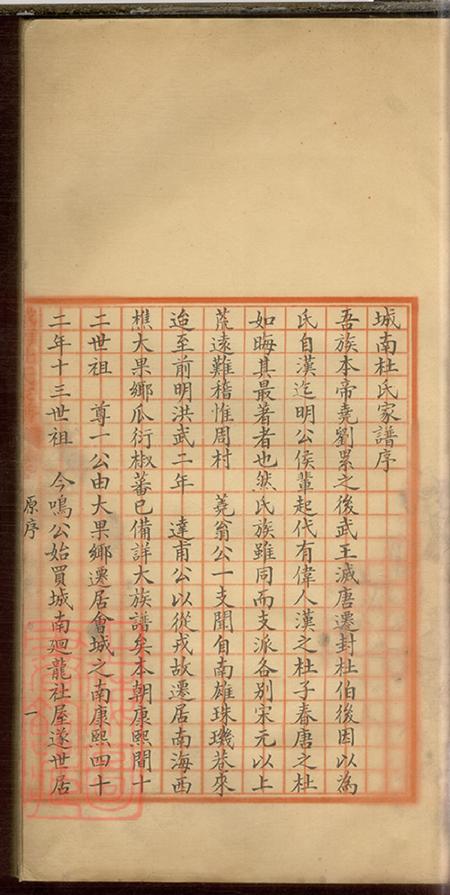 城南杜氏家譜序
吾族本帝堯劉累之後武王滅唐遷封杜伯後因以為
氏自漢迄明公侯輩起代有偉人漢之杜子春唐之杜
如晦其最著者也然氏族雖同而支派各別宋元以上
荒遠難稽惟周村　蕘翁公一支聞自南雄珠璣巷來
迨至前明洪武二年　達甫公以從戎故遷居南海西
樵大果鄉瓜衍椒蕃已備詳大族譜矣本朝康熙間十
二世祖　尊一公由大果鄉遷居會城之南康熙四十
二年十三世祖　今鳴公始買城南迴龍社屋遂世居
原序
一